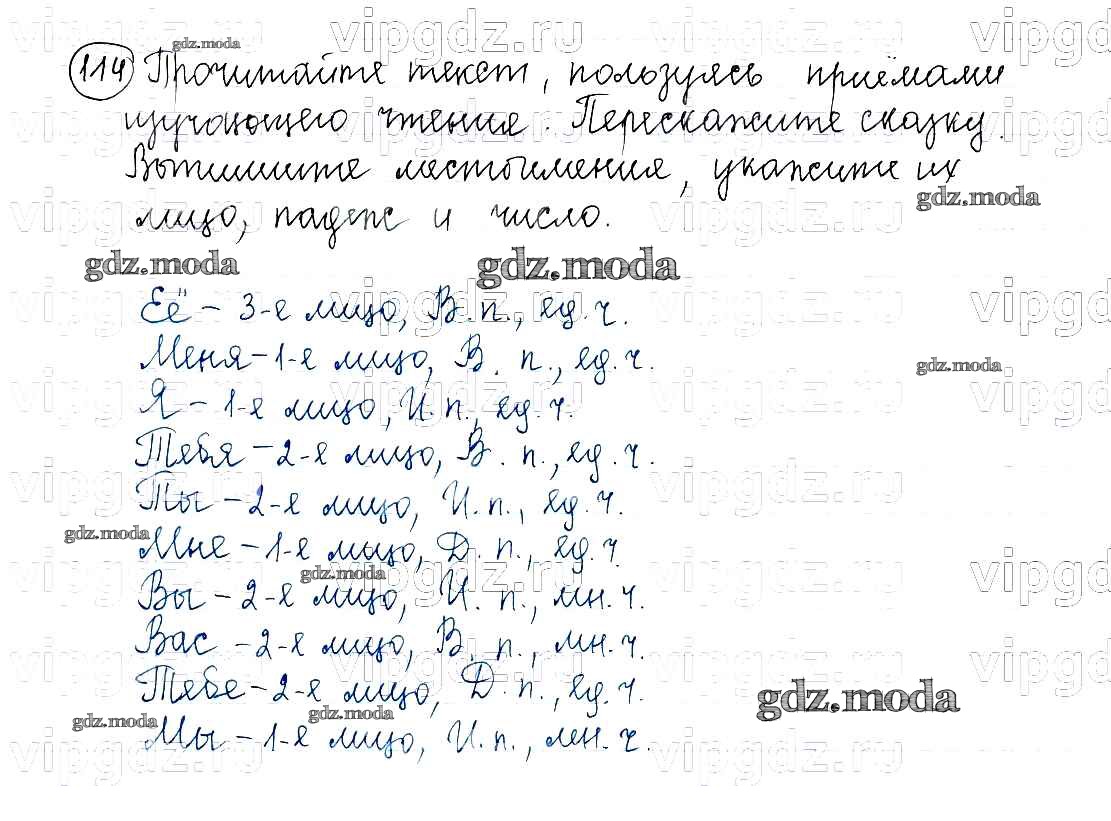 114 Прочитайте текст, пользуясь приёмами
изучающего чтения. Перескажите сказку.
Выпишите местоимения, укажите их
лицо, падеж и число.
Её - 3-е лицо, В. п., ед. ч.
Меня - 1-е лицо, В. п., ед. ч.
Я - 1-е лицо, И. п., ед. ч.
Тебя - 2-е лицо, В. п., ед. ч.
Ты - 2-е лицо, И. п., ед. ч.
Мне - 1-е лицо, Д. п., ед. ч.
Вы - 2-е лицо, И. п., мн. ч.
Вас - 2-е лицо, В. п., мн. ч.
Тебе - 2-е лицо, Д. п., ед. ч.
Мы - 1-е лицо, И. п., мн. ч.
gdz.moda
vipgdz.ru